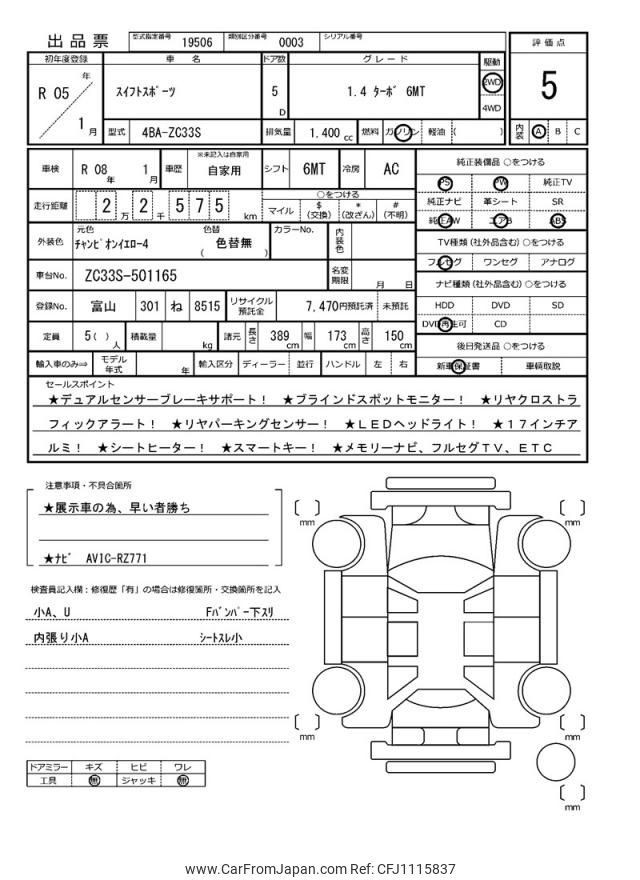 出品票 型式指定番号 19506 類別区分番号 0003 シリアル番号
初年度登録 車名 ドア数 グレード 駆動 評価点
R 05 年 1 月 スイフトスポーツ 5 D 1.4 ターボ 6MT 2WD 4WD 5
型式 4BA-ZC33S 排気量 1.400 cc 燃料 ガソリン 軽油 ( ) 内装 A B C
車検 R 08 年 1 月 車歴 ※未記入は自家用 自家用 シフト 6MT 冷房 AC 純正装備品 ○をつける
PS PW 純正TV
走行距離 2 万 2 千 5 7 5 km ○をつける マイル $ (交換) * (改ざん) # (不明) 純正ナビ 革シート SR
純正AW エアB ABS
外装色 元色 チャンピオンイエロー4 色替 ( 色替無 ) カラーNo. 内装色 TV種類 (社外品含む) ○をつける
フルセグ ワンセグ アナログ
車台No. ZC33S-501165 名変期限 月 日 ナビ種類 (社外品含む) ○をつける
登録No. 富山 301 ね 8515 リサイクル預託金 7,470円預託済 未預託 HDD DVD SD
DVD再生可 CD
定員 5 ( ) 人 積載量 kg 諸元 長さ 389 cm 幅 173 cm 高さ 150 cm 後日発送品 ○をつける
輸入車のみ⇒ モデル年式 年 輸入区分 ディーラー 並行 ハンドル 左 右 新車保証書 車輌取説
セールスポイント
★デュアルセンサーブレーキサポート！ ★ブラインドスポットモニター！ ★リヤクロストラ
フィックアラート！ ★リヤパーキングセンサー！ ★ＬＥＤヘッドライト！ ★１７インチア
ルミ！ ★シートヒーター！ ★スマートキー！ ★メモリーナビ、フルセグＴＶ、ＥＴＣ
注意事項・不具合箇所
★展示車の為、早い者勝ち
★ナビ AVIC-RZ771
検査員記入欄：修復歴「有」の場合は修復箇所・交換箇所を記入
小A、U Fバンパー下スリ
内張り小A シートスレ小
mm
mm
mm
mm
mm
ドアミラー キズ ヒビ ワレ
工具 無 ジャッキ 無
www.CarFromJapan.com Ref: CFJ1115837